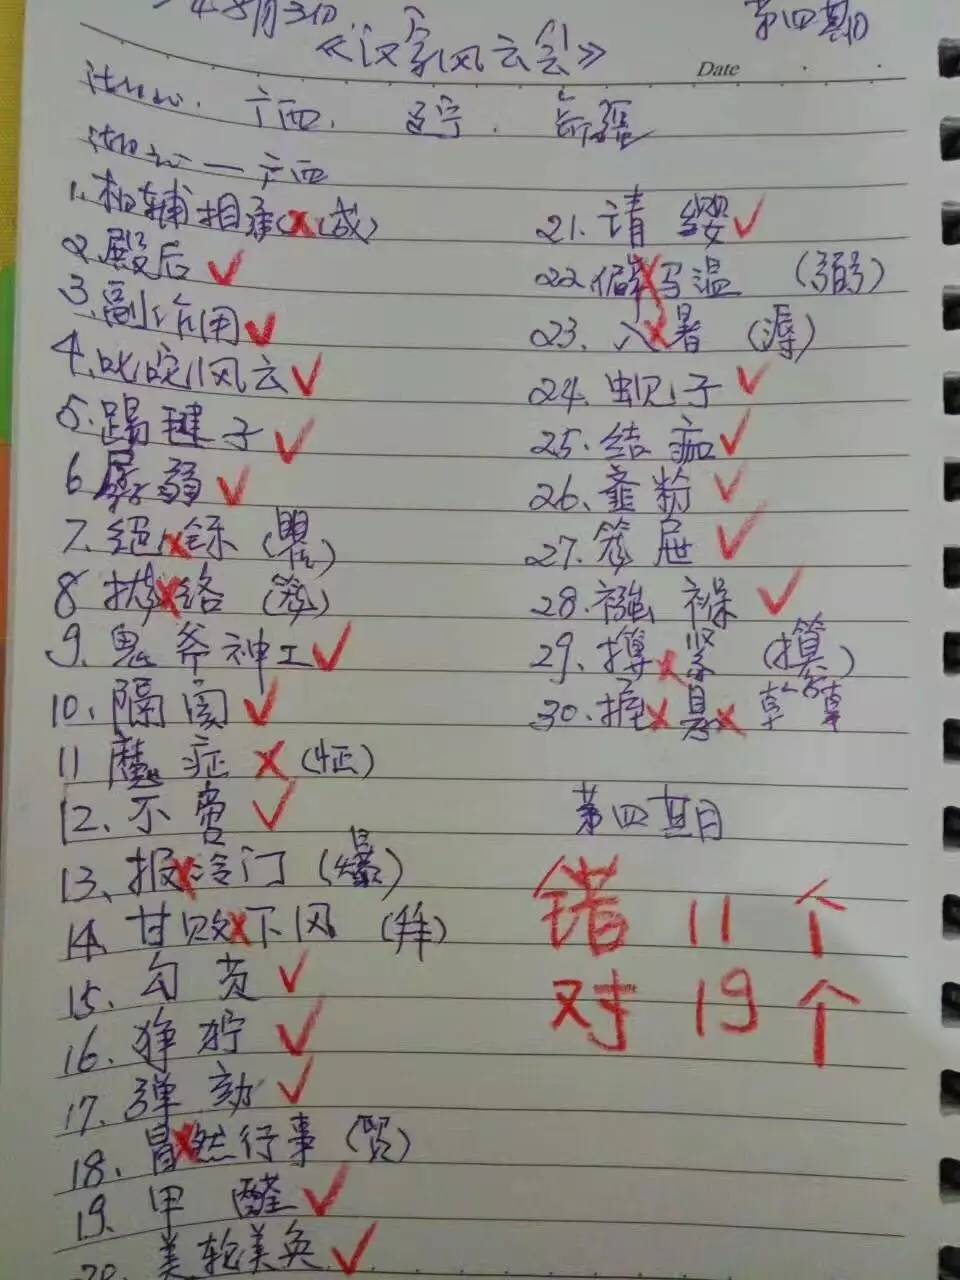 8月3日
第四期
《汉字风云会》
Date
广西. 辽宁.
广西
1.相辅相承(成)
2.殿后
3.副作用
4.叱咤风云
5.踢毽子
6.孱弱
7.
8. 络
9.鬼斧神工
10.隔阂
11 魔症(怔)
12.不啻
13.报冷门(爆)
14.甘败下风(拜)
15.勾芡
16.狰狞
17.弹劾
18.冒然行事(贸)
19.甲醛
20.美轮美奂
21.请缨
22.僻马温(弼)
23.入暑(溽)
24.蚬子
25.结痂
26.齑粉
27.笏屉
28.襁褓
29.搏紧(摸)
30.
第四期
错11个
对19个